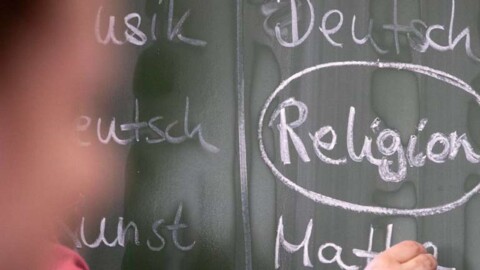 usik Deutsch
eutsch Religion
unst Mathe